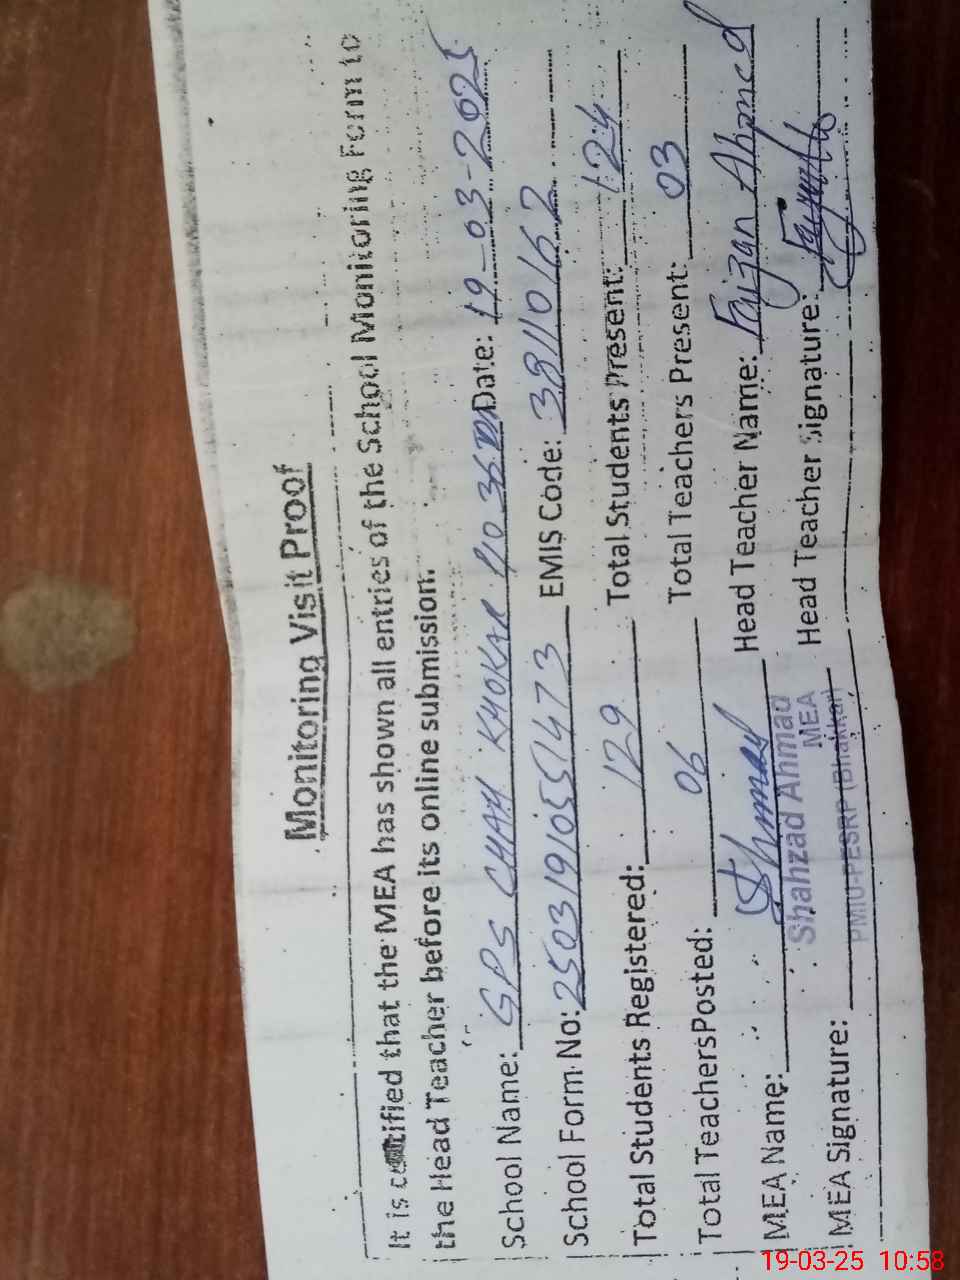 Monitoring Visit Proof
It is certified that the MEA has shown all entries of the School Monitoring Form to
the Head Teacher before its online submission.
School Name: GPS CHAH KHOKAR NO 36 Date: 19-03-2025
School Form No: 25031910551473 EMIS Code: 38110162
Total Students Registered: 129 Total Students Present: 124
Total Teachers Posted: 06 Total Teachers Present: 03
MEA Name: Head Teacher Name: Faizan Ahmed
Shahzad Ahmad
MEA
MEA Signature: Head Teacher Signature:
PMIU-PESRP (Bhakkar)
19-03-25 10:58